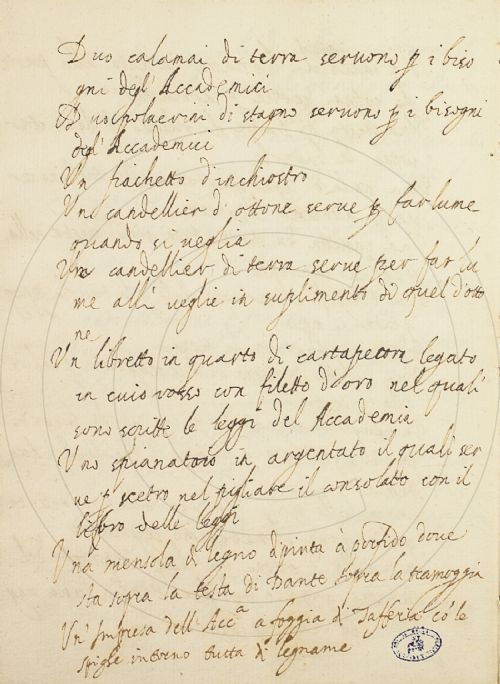 Duo calamai di terra seruono p i biso
gni degl' Accademici
Duo polaerini di stagno seruono p i bisogni
degl' Accademici
Un fiachetto d'inchiostro
Un candellier d'ottone serue p far lume
quando si ueglia
Un candellier di terra serue per far lu
me alli ueglie in suplimento di quel d'otto
ne
Un libretto in quarto di cartapecora legato
in cuio rosso con filetto d'oro nel quali
sono scritte le leggi del Accademia
Uno spianatoio in argentato il quali ser
ue p scetro nel pigliare il consolatto con il
libro delle leggi
Una mensola di legno dipinta à porfido doue
sta sopra la testa di Dante sopra la tramoggia
Un' Impresa dell' Acc.a a foggia di Tafferia có le
spighe intorno tutta di legname